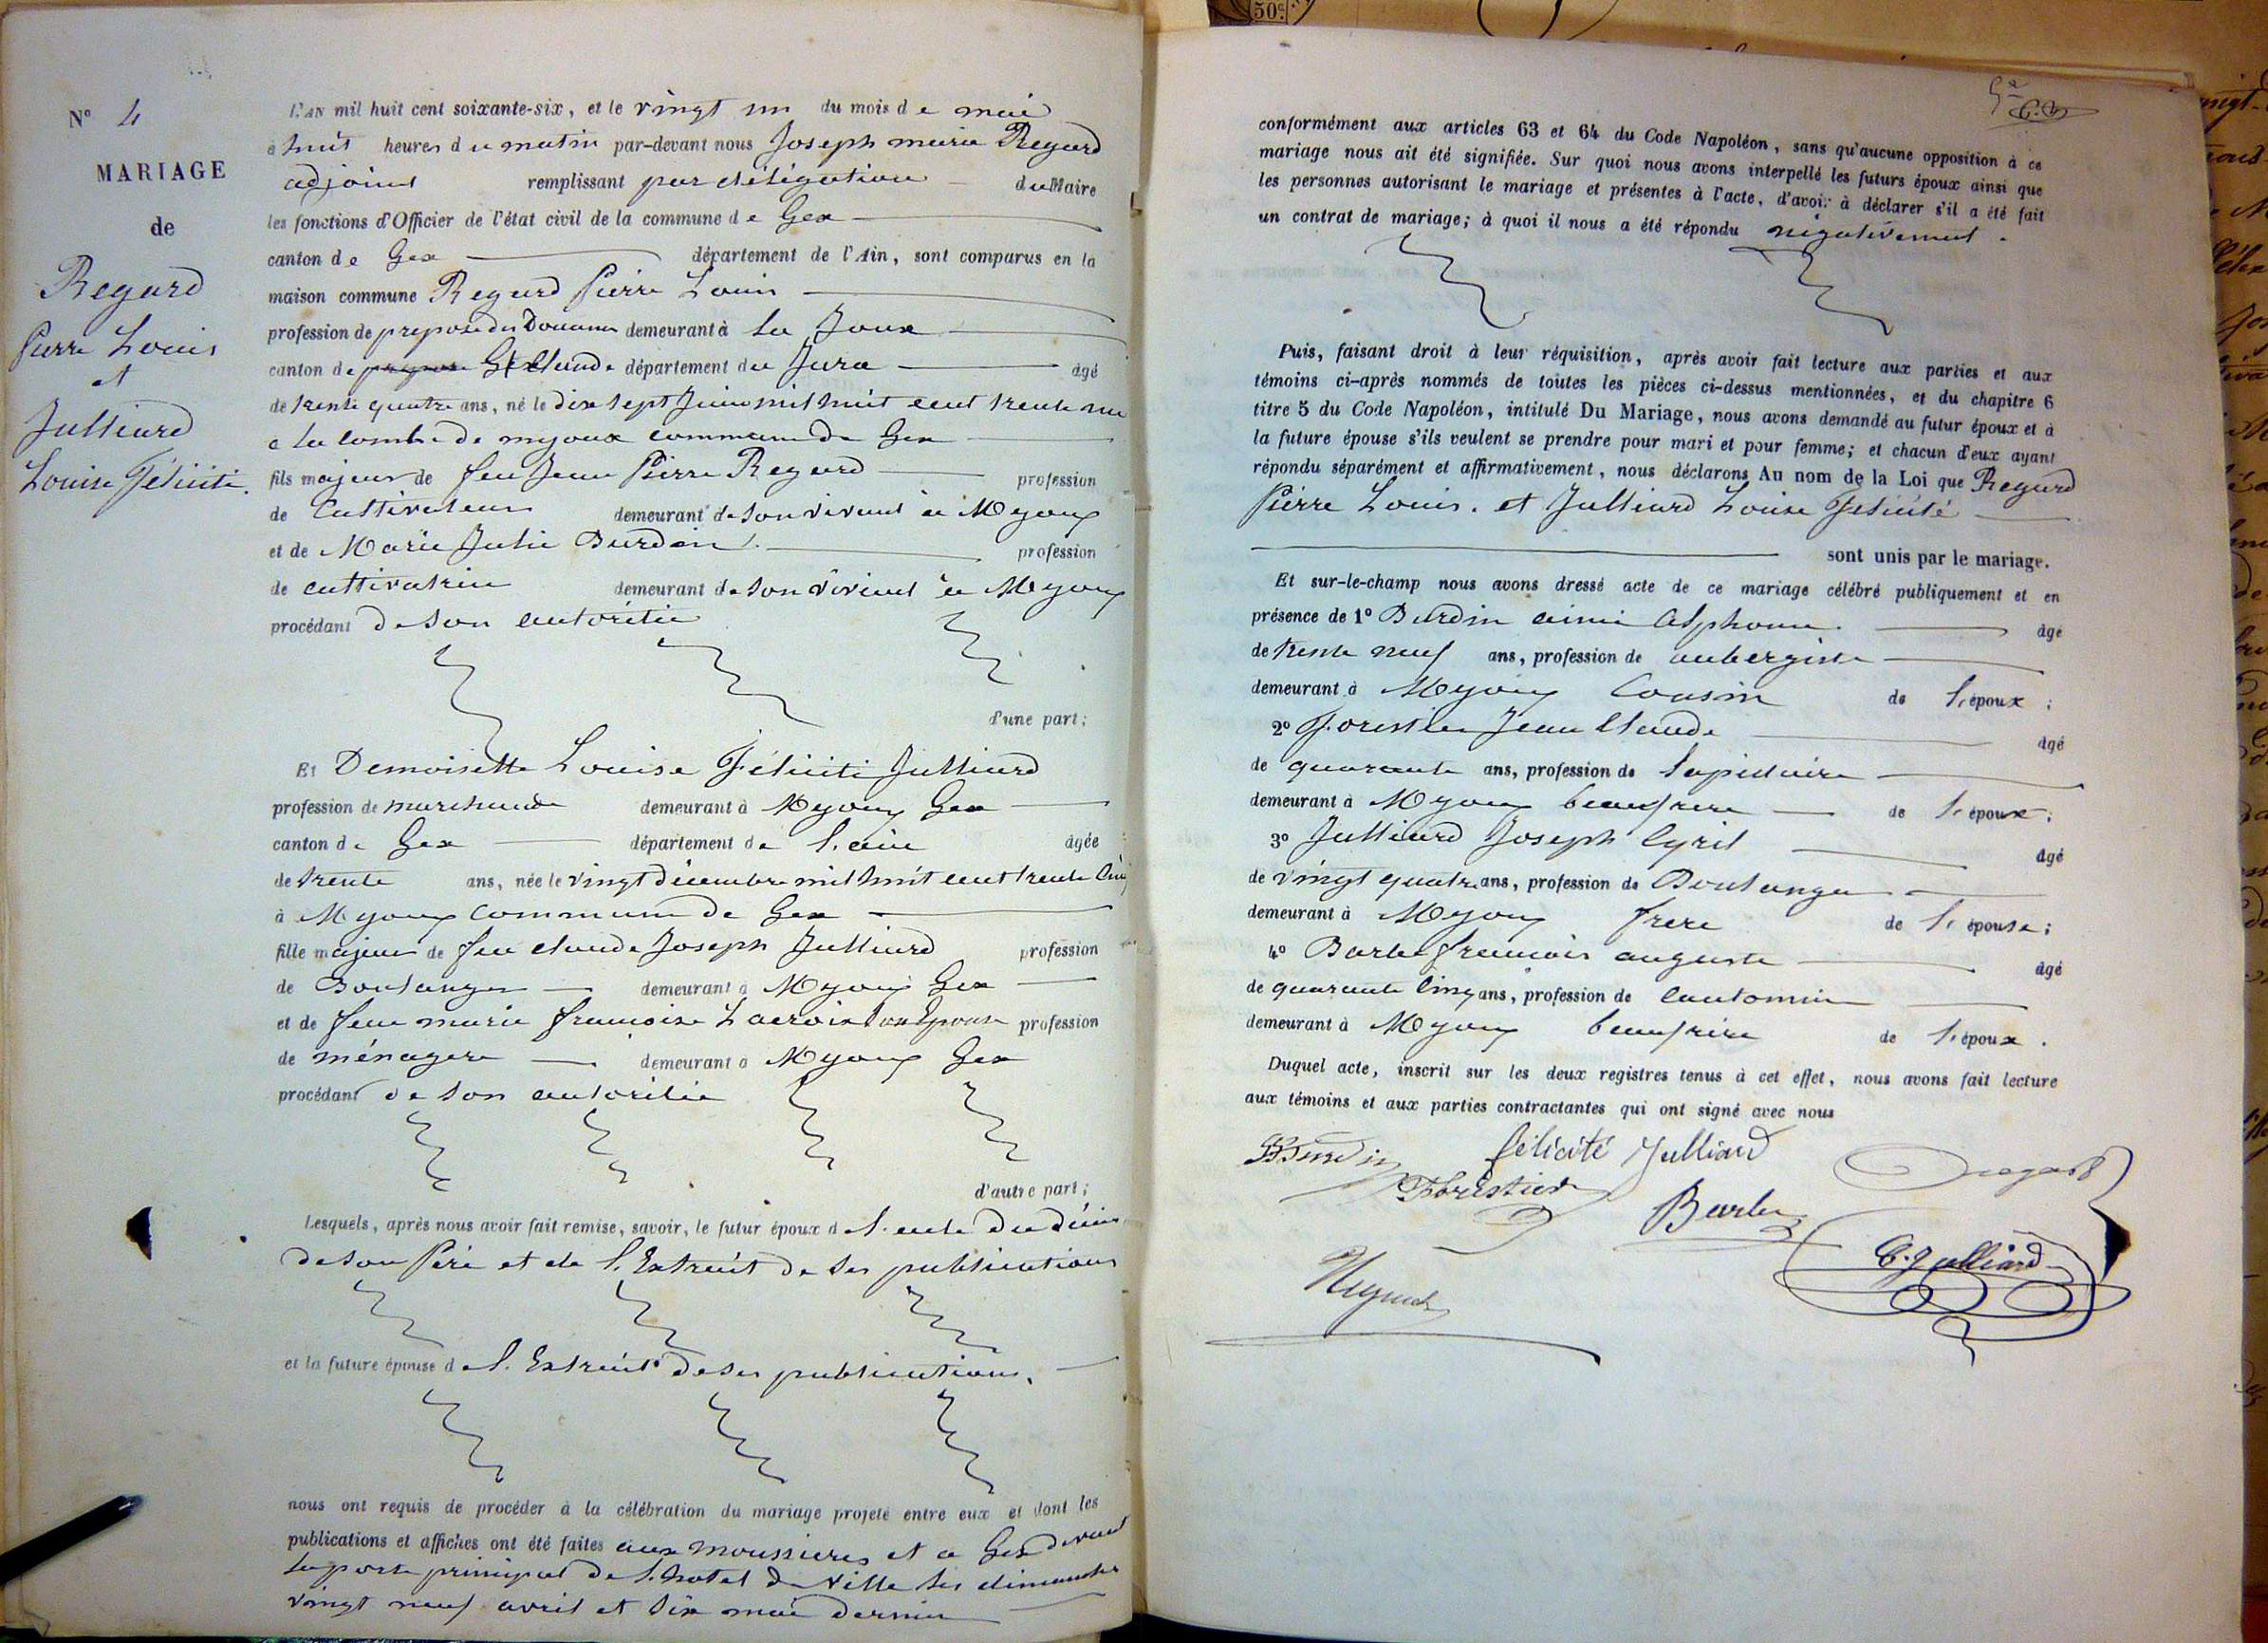 N° 4
MARIAGE
de
Regard
Pierre Louis
et
Julliard
Louise Félicité.
L'AN mil huit cent soixante-six, et le vingt un du mois de mai
à huit heures du matin par-devant nous Joseph marie Regard
adjoint remplissant par délégation du Maire
les fonctions d'Officier de l'état civil de la commune de Gex
canton de Gex département de l'Ain, sont comparus en la
maison commune Regard Pierre Louis
profession de préposé des Douanes demeurant à La Joux
canton de St Claude département du Jura âgé
de trente quatre ans, né le dix sept Juin mil huit cent trente un
a la combe de myjoux commune de Gex
fils majeur de feu Jean Pierre Regard profession
de Cultivateur demeurant de son vivant à Myoux
et de Marie Julie Burdin profession
de cultivatrice demeurant de son vivant à Myoux
procédant de son autorité
d'une part;
Et Demoiselle Louise Félicité Julliard
profession de marchande demeurant à Myoux Gex
canton de Gex département de l'ain âgée
de trente ans, née le vingt décembre mil huit cent trente Cinq
à Myoux Commune de Gex
fille majeur de feu claude Joseph Julliard profession
de Boulanger demeurant à Myoux Gex
et de feue marie francoise Lacroix son Epouse profession
de ménagere demeurant à Myoux Gex
procédant de son autorité
d'autre part;
Lesquels, après nous avoir fait remise, savoir, le futur époux de l'acte du décès
de son Père et de l'Extrait de ses publications
et la future épouse de l'Extrait de ses publications.
nous ont requis de procéder à la célébration du mariage projeté entre eux et dont les
publications et affiches ont été faites aux moussieres et a Gex devant
la porte principal de l'hotel de Ville les dimanches
vingt neuf avril et six mai dernier
conformément aux articles 63 et 64 du Code Napoléon, sans qu'aucune opposition à ce
mariage nous ait été signifiée. Sur quoi nous avons interpellé les futurs époux ainsi que
les personnes autorisant le mariage et présentes à l'acte, d'avoir à déclarer s'il a été fait
un contrat de mariage; à quoi il nous a été répondu négativement.
Puis, faisant droit à leur réquisition, après avoir fait lecture aux parties et aux
témoins ci-après nommés de toutes les pièces ci-dessus mentionnées, et du chapitre 6
titre 5 du Code Napoléon, intitulé Du Mariage, nous avons demandé au futur époux et à
la future épouse s'ils veulent se prendre pour mari et pour femme; et chacun d'eux ayant
répondu séparément et affirmativement, nous déclarons Au nom de la Loi que Regard
Pierre Louis. et Julliard Louise Félicité
sont unis par le mariage.
Et sur-le-champ nous avons dressé acte de ce mariage célébré publiquement et en
présence de 1° Burdin aimé Alphonse. âgé
de trente neuf ans, profession de aubergiste
demeurant à Myoux Cousin de l'époux;
2° Forestier Jean Claude âgé
de quarante ans, profession de lapidaire
demeurant à Myoux beaufrere de l'époux;
3° Julliard Joseph Cyril âgé
de vingt quatre ans, profession de Boulanger
demeurant à Myoux frere de l'épouse;
4° Barbe francois auguste âgé
de quarante Cinq ans, profession de Cantonnier
demeurant à Myoux beaufrère de l'époux.
Duquel acte, inscrit sur les deux registres tenus à cet effet, nous avons fait lecture
aux témoins et aux parties contractantes qui ont signé avec nous
Burdin félicité Julliard Regard
Forestier
Barbe
C. Julliard
Regard